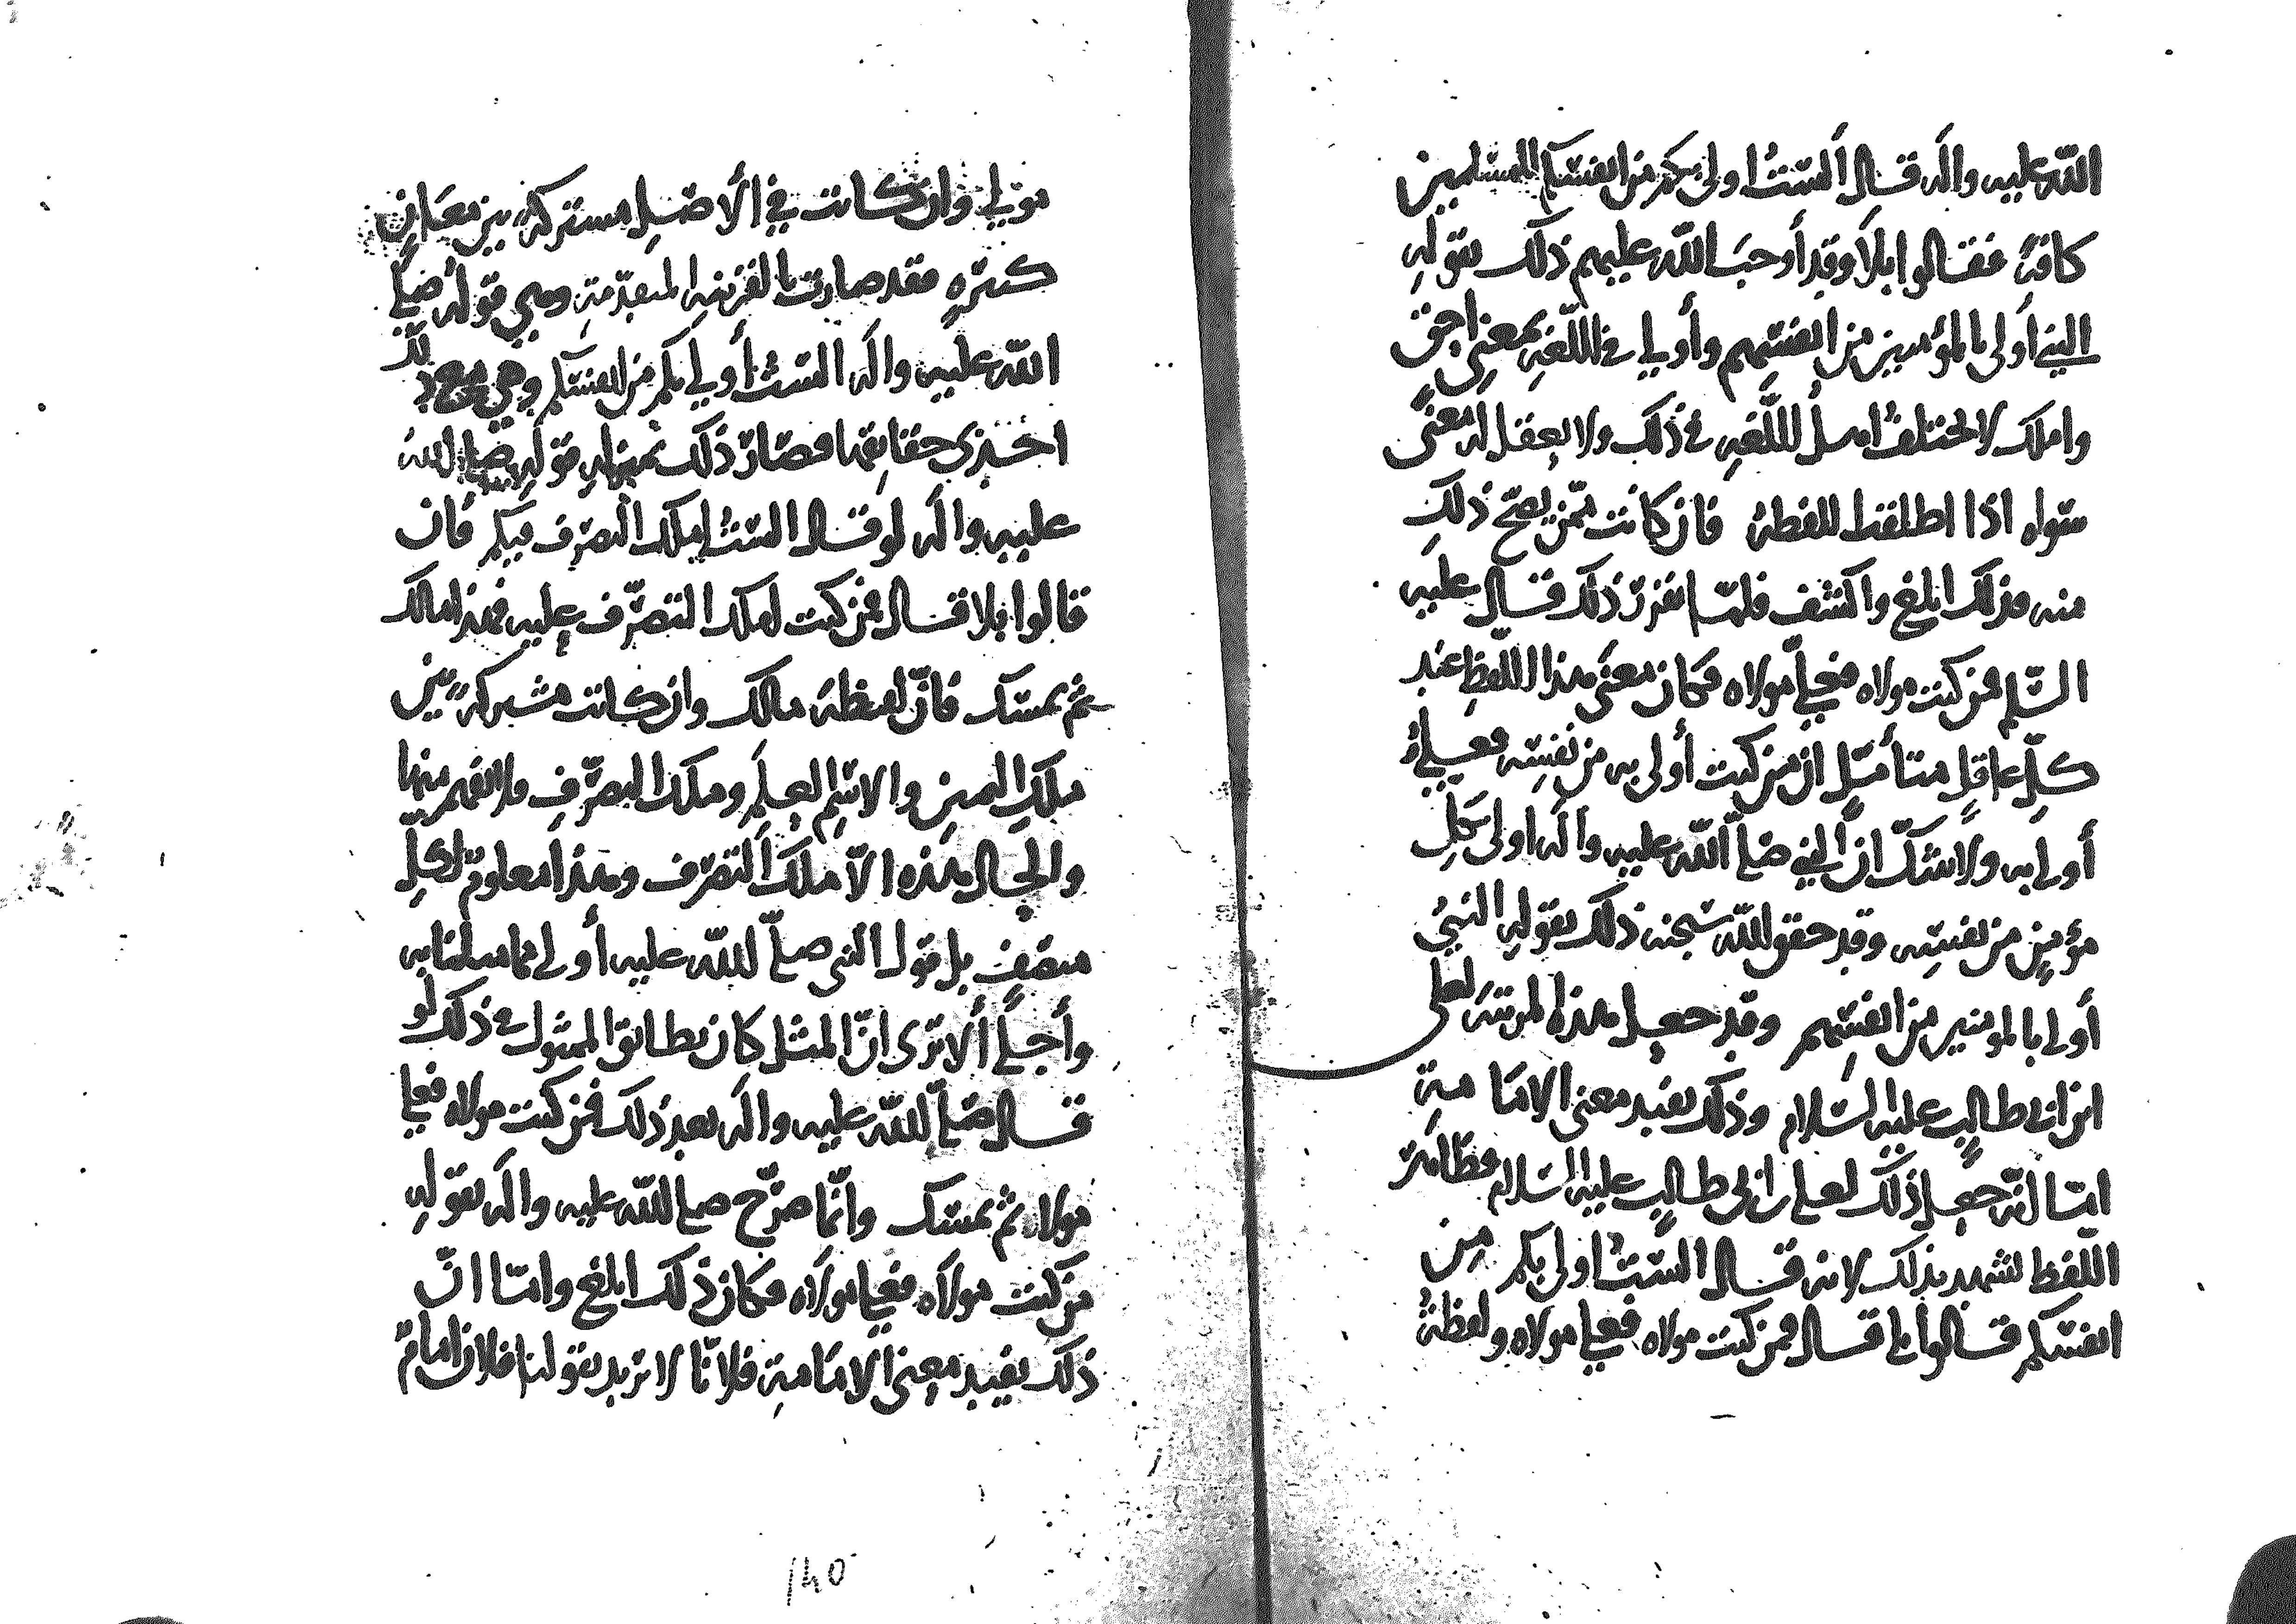 الله عليه وآله قال ألستُ أولى بكم من أنفسكم للمسلمين
كافة فقالوا بلا وقد أوجب الله عليهم ذلك بقوله
النبي أولى بالمؤمنين من أنفسهم وأولى في اللغة بمعنى أحق
وأملك لا يختلف أهل اللغة في ذلك ولا يعقل له معنى
سواه اذا اطلقت اللفظة فان كانت ممن يصح ذلك
منه فذلك ابلغ واكشف فلما تقرر ذلك قال عليه
السلم فمن كنت مولاه فعلي مولاه فكان معنى هذا اللفظ عند
كل عاقل متأمل ان من كنت أولى به من نفسه فعلي
أولى به ولا شك ان النبي صلى الله عليه وآله اولى بكل
مؤمن من نفسه وقد حقق الله سبحنه ذلك بقوله النبي
أولى بالمؤمنين من انفسهم وقد جعل هذه المرتبة لعلي
ابن ابي طالب عليه السلام وذلك يفيد معنى الامامة
اما انه جعل ذلك لعلي بن ابي طالب عليه السلام فظاهر
اللفظ يشهد بذلك لانه قال ألست اولى بكم من
انفسكم قالوا بلى قال فمن كنت مولاه فعلي مولاه ولفظة
مولى وان كانت في الأصل مشتركة بين معان
كثيرة فقد صارت بالقرينة المتقدمة وهي قوله صلى
الله عليه وآله ألست أولى بكم من أنفسكم وهي مع ذلك
احدى حقائقها فصار ذلك بمنزلة قوله صلى الله
عليه وآله لو قال ألست املك التصرف فيكم فان
قالوا بلا قال فمن كنت املك التصرف عليه فهذا مالك
ثم يمسك فان لفظة مالك وان كانت مشتركة بين
ملك اليمين والاسم العلم وملك التصرف فلا يفهم منها
والحال هذه الا ملك التصرف وهذا معلوم لكل
منصف بل قول النبي صلى الله عليه أولى مما مثلنا به
وأجلى ألا ترى ان المثل كان يطابق الممثول في ذلك لو
قال صلى الله عليه وآله بعد ذلك فمن كنت مولاه فعلي
مولاه ثم يمسك وانما صرح صلى الله عليه وآله بقوله
من كنت مولاه فعلي مولاه فكان ذلك ابلغ واما ان
ذلك يفيد معنى الامامة فلانا لا نريد بقولنا فلان امام
140